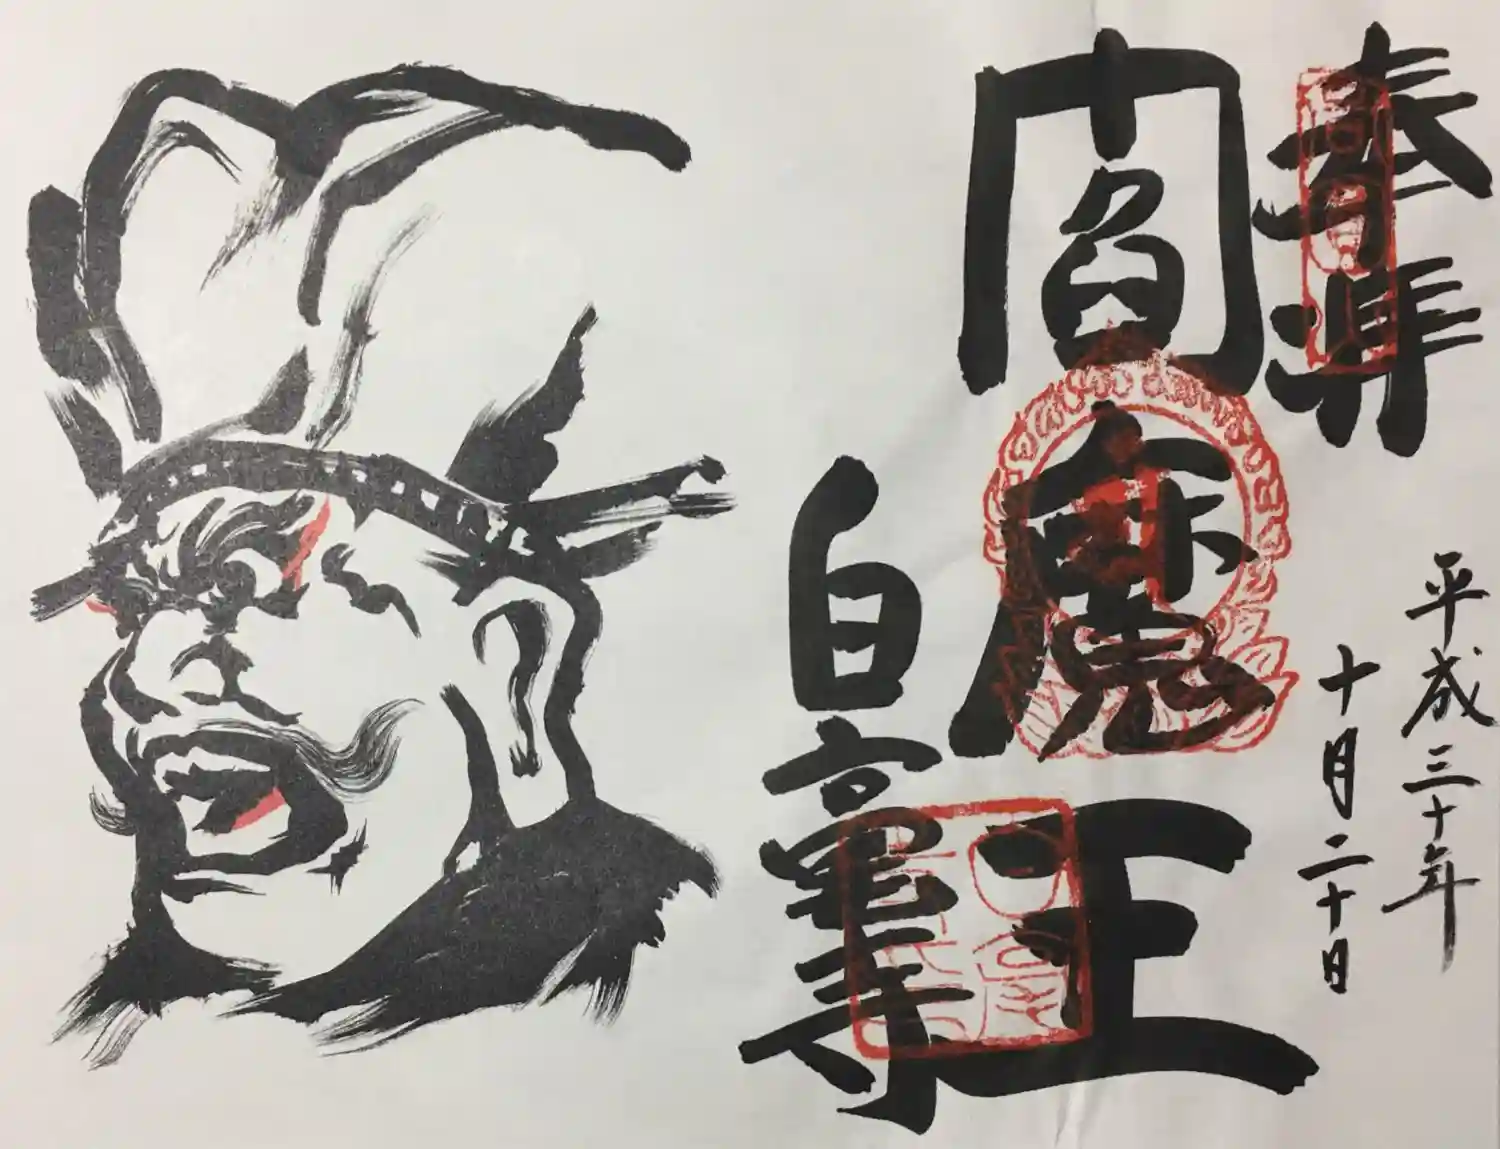 奉拝
平成三十年
十月二十日
閻魔王
白毫寺